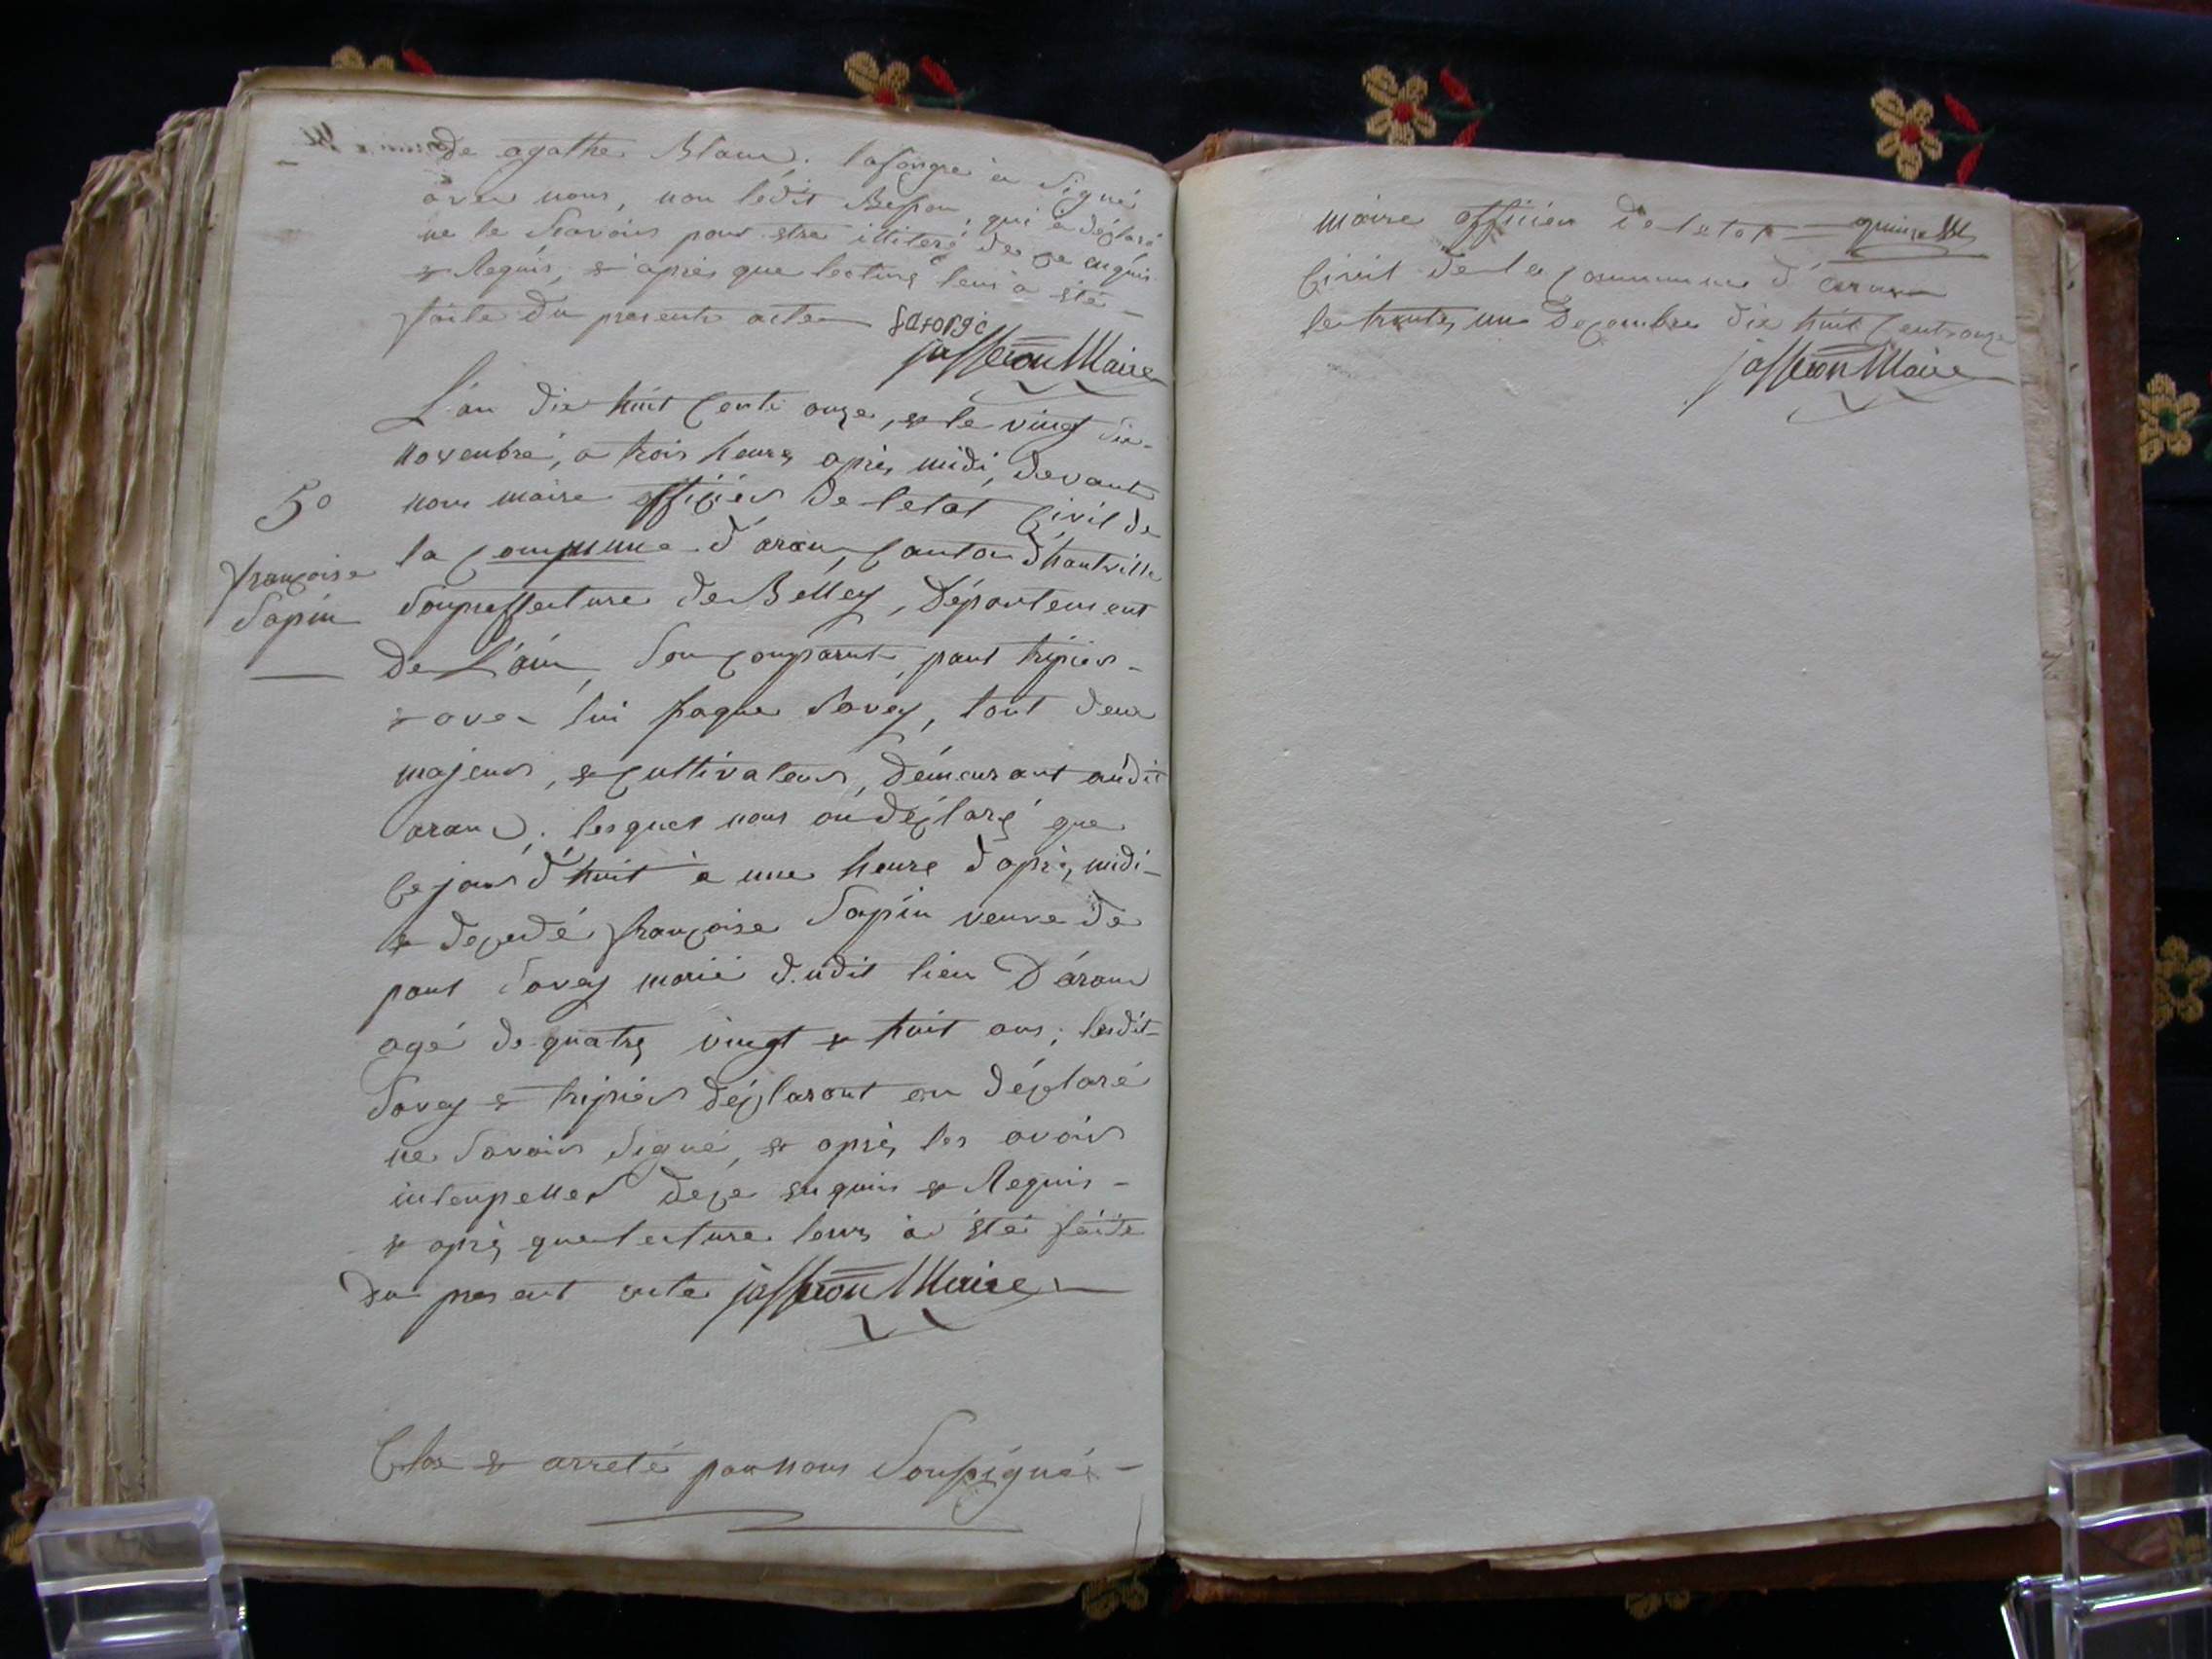 de agathe Blanc. laforge à Signé
avec nous, non ledit Besson, qui à déclaré
ne le Scavoir pour estre illiteré de ce enquis
& Requis, & après que lecture leur à été
faite du presente acte laforge
jasseron Maire
L'an dix huit cents onze, & le vingt six
novembre, a trois heures après midi, devant
nous maire officier de letat civil de
la commune d'aranc, canton dhautville
souprefecture de Belley, Département
de L'ain, Son comparut, paul tripier
& avec lui jaque Savey, tout deux
majeurs, & cultivateurs, démeurant audit
aranc. lesquel nous on déclaré que
cejourd'huit à une heure d'après midi
& decedé françoise Sapin veuve de
paul Savey marié dudit lieu D'aranc
agé de quatre vingt & huit ans; lesdit
Savey & tripier déclarant on déclaré
ne Savoir Signé, & après les avoir
interpeller dece enquis & Requis
& après que lecture leurs à été faite
du present acte jasseron Maire
50
françoise
Sapin
Clos & arreté par nous Soussigné
maire officier de letat quinze
Civil de la commune d'aranc
le trente, un Decembre dix huit cents onze
jasseron Maire